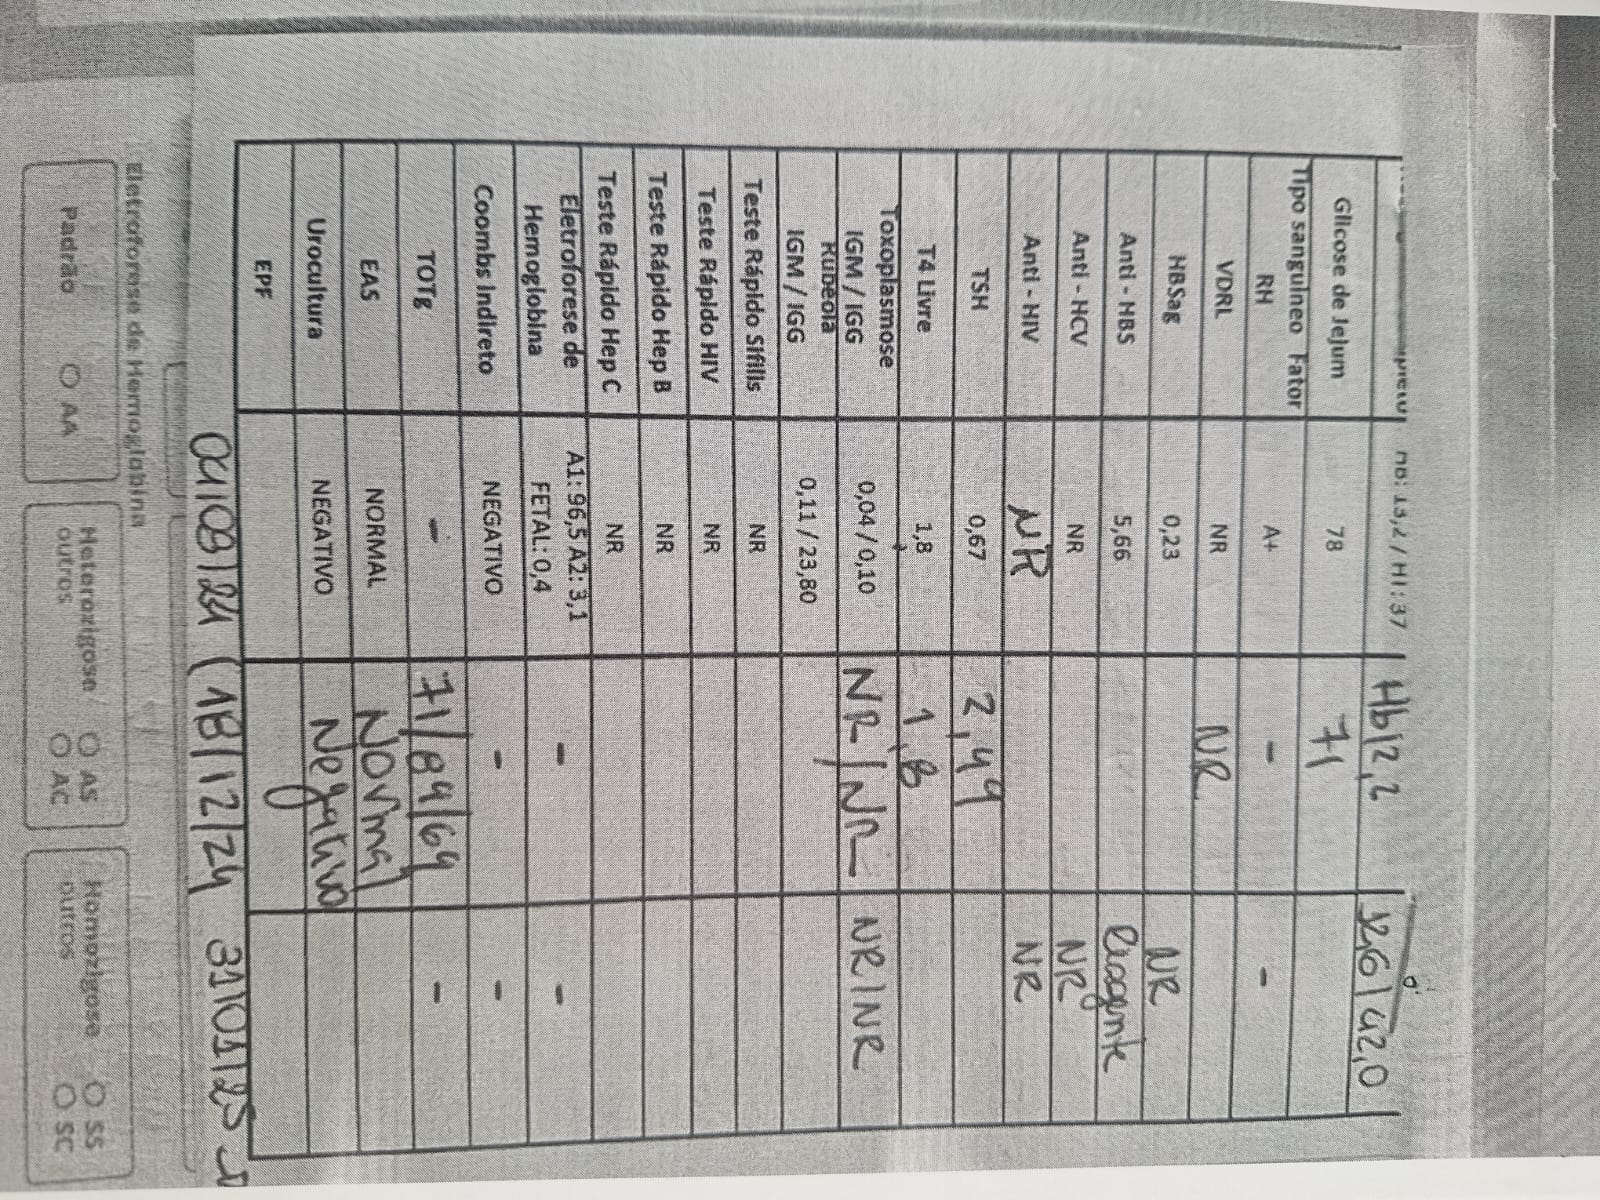 Hb: 13,2 / Ht: 37 Hb12,2 12,6 / 42,0
Glicose de Jejum 78 71
Tipo sanguíneo Fator
RH A+ - -
VDRL NR NR
HBSag 0,23 NR
Anti - HBS 5,66 Reagente
Anti - HCV NR NR
Anti - HIV NR NR
TSH 0,67 2,49
T4 Livre 1,8 1,8
Toxoplasmose
IGM / IGG 0,04 / 0,10 NR / NR NR / NR
Rubéola
IGM / IGG 0,11 / 23,80
Teste Rápido Sífilis NR
Teste Rápido HIV NR
Teste Rápido Hep B NR
Teste Rápido Hep C NR
Eletroforese de A1: 96,5 A2: 3,1
Hemoglobina FETAL: 0,4 - -
Coombs Indireto NEGATIVO - -
TOTg - 71/89/69 -
EAS NORMAL Normal
Urocultura NEGATIVO Negativo
EPF
04/08/24 (18/12/24 31/01/25
Eletroforese de Hemoglobina
Padrão AA
Heterozigose AS
outros AC
Homozigose SS
outros SC